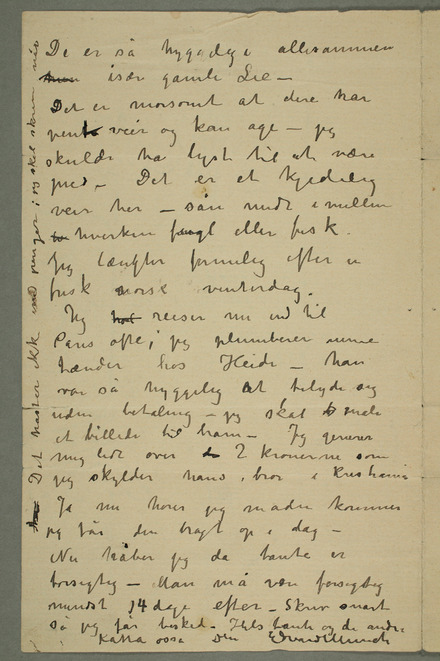 De er så hyggelige allesammen
især gamle Lie –
Det er morsomt at dere har
pent veir og kan age – jeg
skulde ha lyst til at være
med – Det er et kjedelig
veir her – sån midt imellem
hverken fugl eller fisk.
Jeg længter formelig efter en
frisk norsk vinterdag.
Jeg reiser nu ind til
Paris ofte; jeg plumberer mine
tænder hos Heide – han
var så hyggelig at tilbyde sig
uden betaling – jeg skal sende
et billede til ham – Jeg generer
mig lidt over 2 kronerne som
jeg skylder hans bror i Kristiania
Ja nu hører jeg maden kommer
jeg får den bragt op i dag –
Nu håber jeg da tante er
forsigtig – Man må være forsigtig
mindst 14 dage efter – Skriv snart
så jeg får besked. Hils tante og de andre
Katta osså Din Edvard Munch
Det haster ikke med penger; jeg skal skrive når